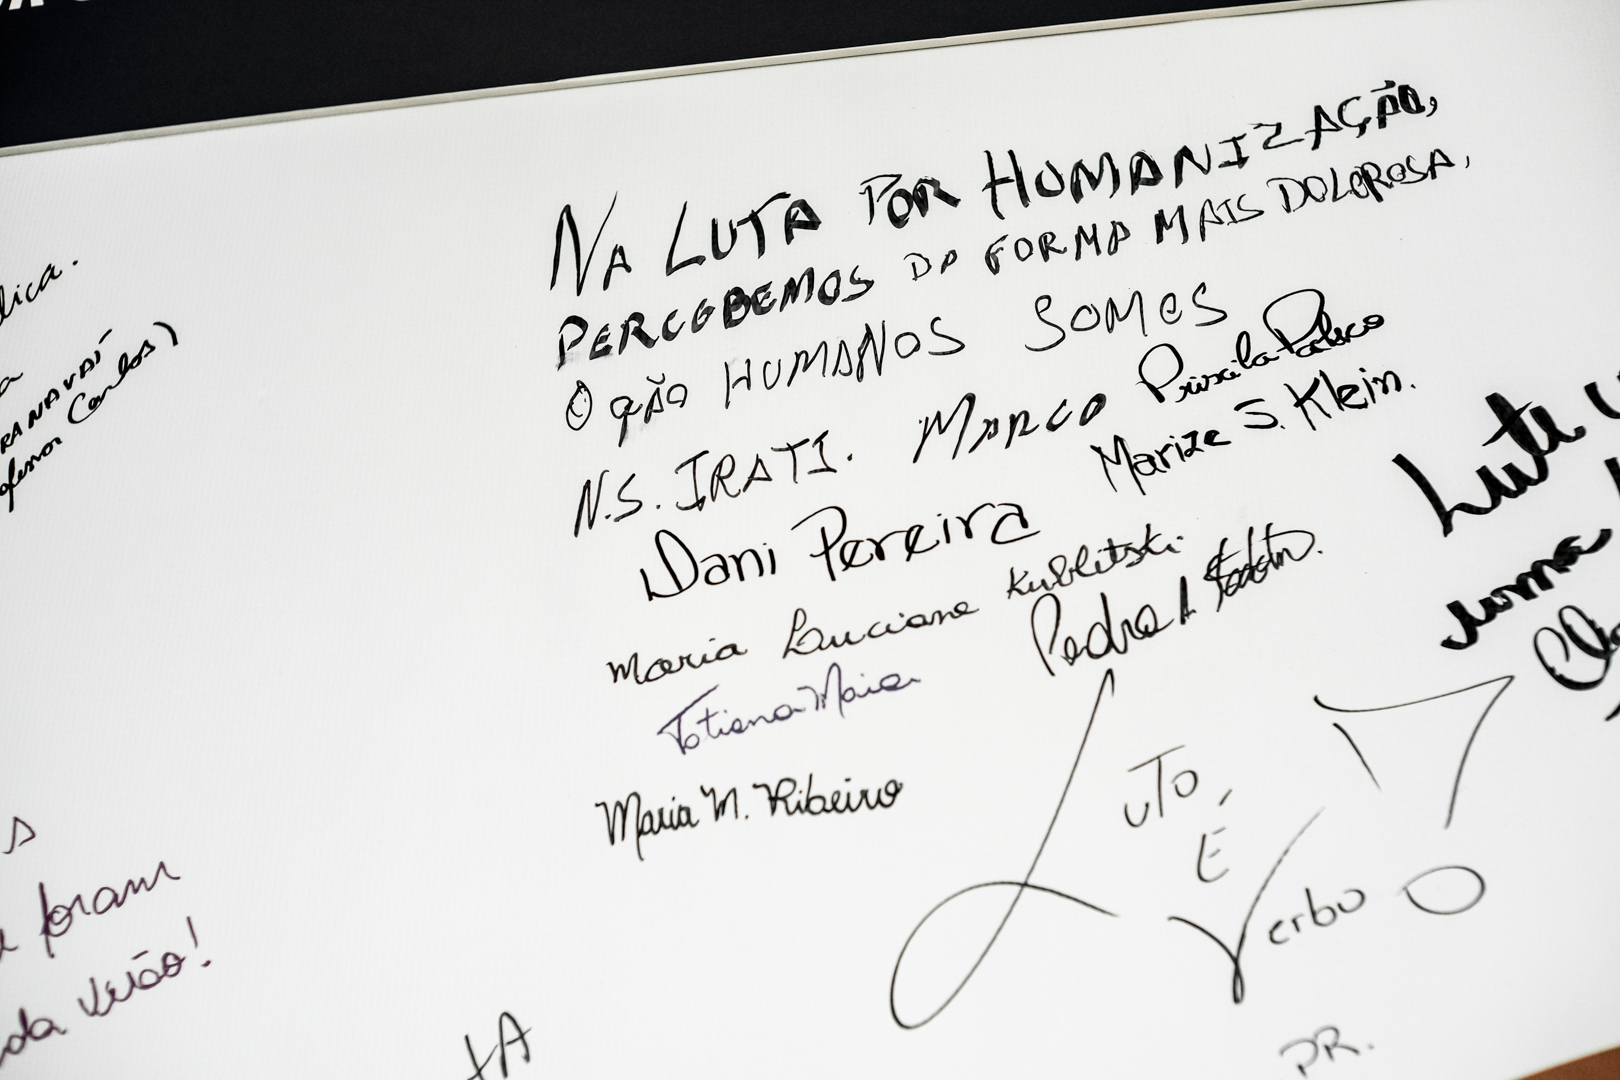 NA LUTA POR HUMANIZAÇÃO,
PERCEBEMOS DA FORMA MAIS DOLOROSA,
O QÃO HUMANOS SOMOS
N.S. IRATI. MARCO
Marize S. Klein.
Dani Pereira
Maria Luciane Kublitski
Pedro A
Tatiana Maia
Maria M. Ribeiro
LUTO
É
Verbo!
PR.
Lute
uma
dica.
a
RANAVAÍ
ofessor Carlos)
s
foram
da verão!
tA